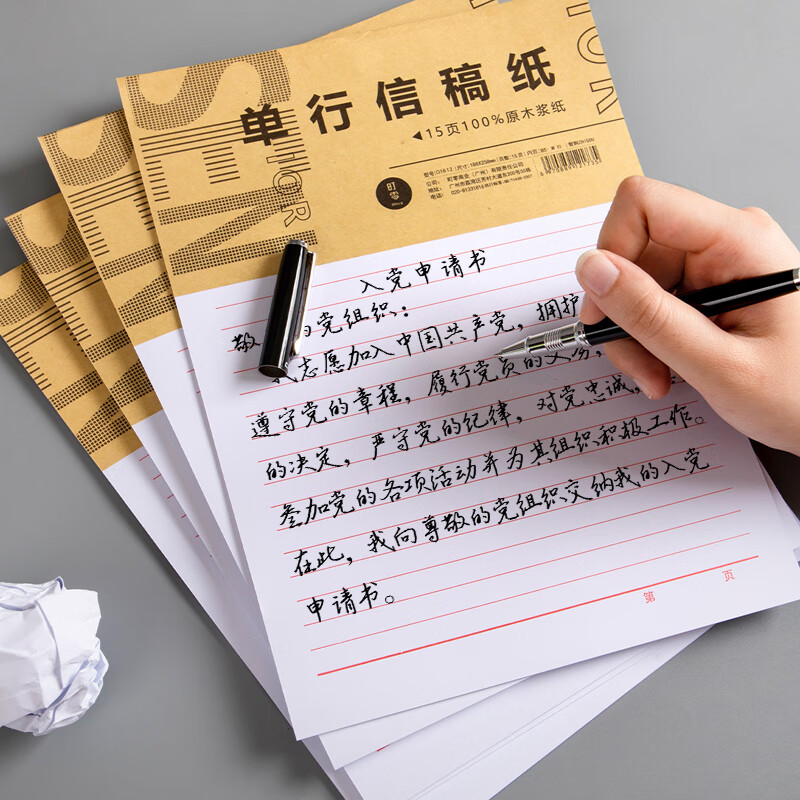 单行信稿纸
◀15页100%原木浆纸
町零
入党申请书
敬 的党组织：
我志愿加入中国共产党，拥护
遵守党的章程，履行党员的义务，
的决定，严守党的纪律，对党忠诚，
参加党的各项活动并为其组织积极工作。
在此，我向尊敬的党组织交纳我的入党
申请书。
第 页